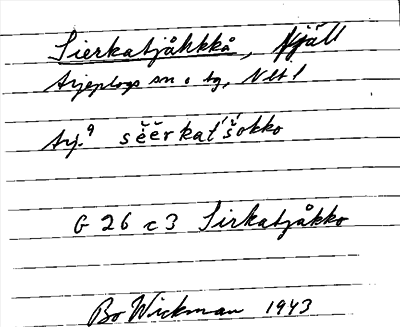 Sierkatjåhkkå, fjäll
Arjeplogs sn o tg, Nlt l
Arj. 9 sĕĕrkat́šokko
G 26 c 3 Sirkatjåkko
Bo Wickman 1943